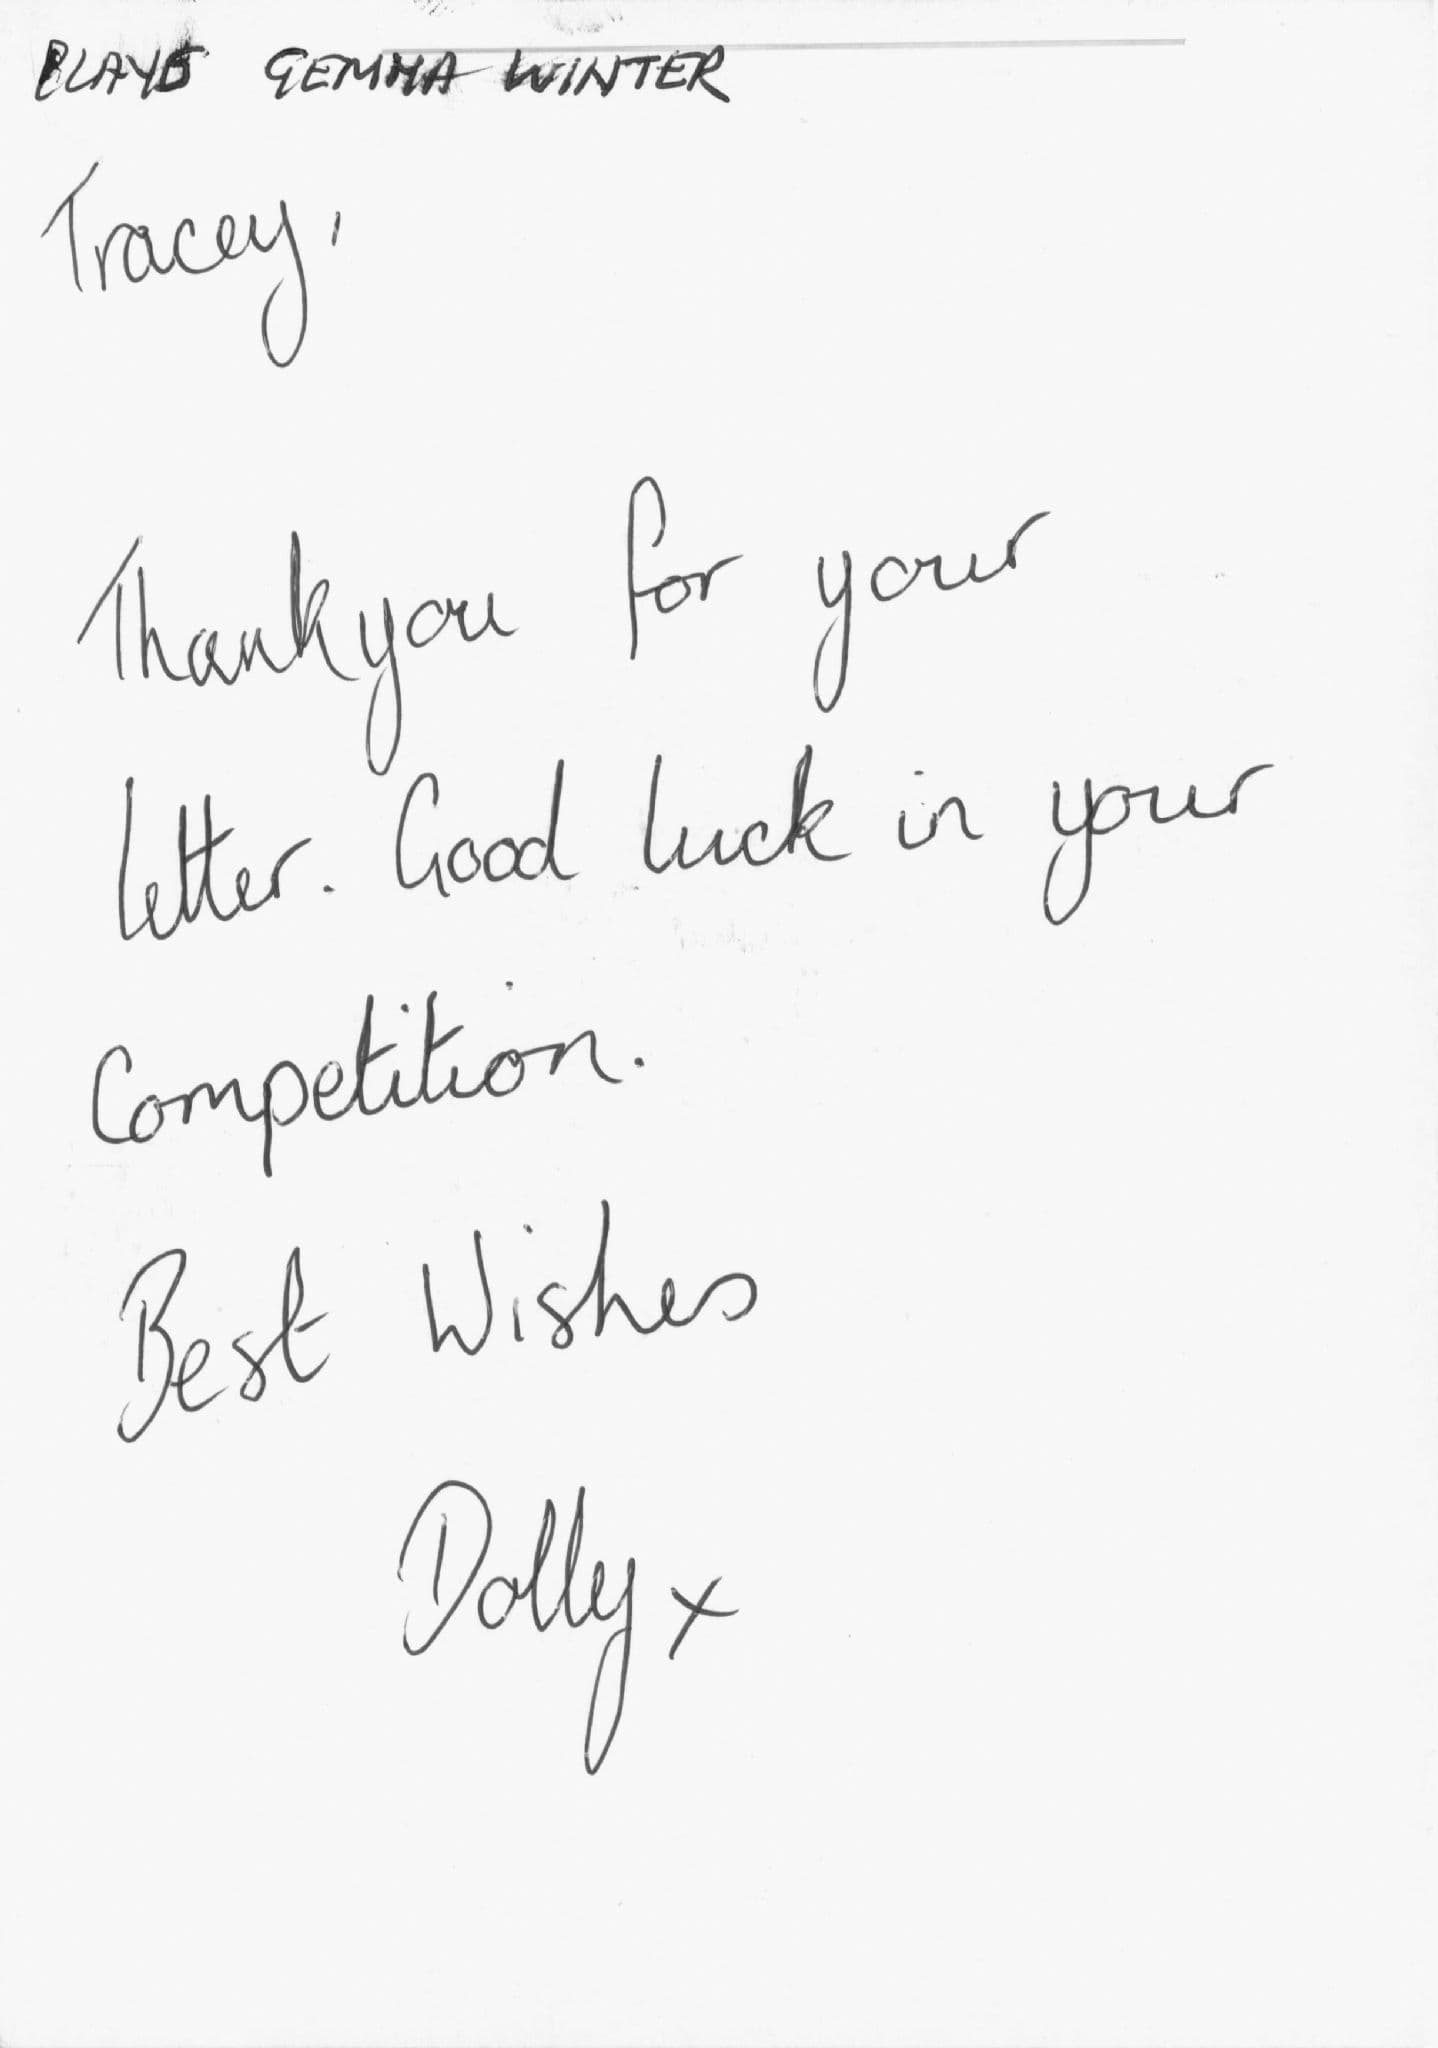 PLAYS GEMMA WINTER
Tracey,
Thankyou for your
letter. Good luck in your
Competition.
Best Wishes
Dolly x